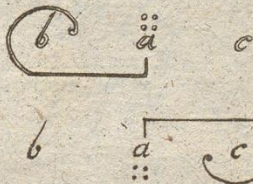 b a c
b a c